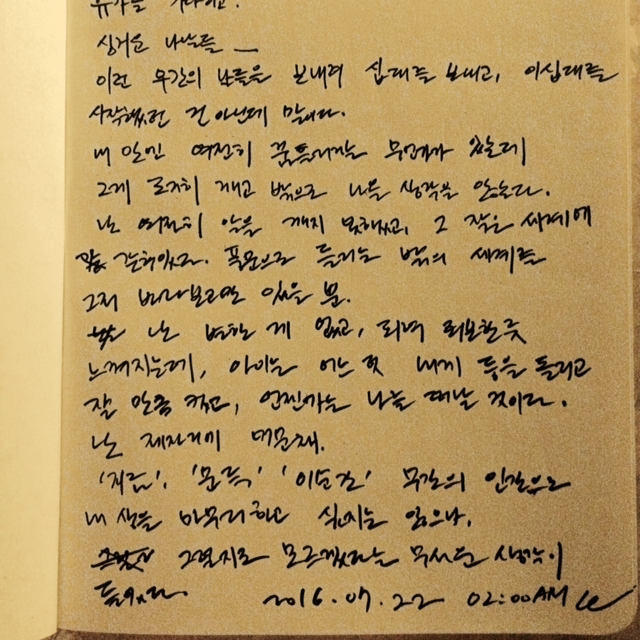 싱거운 나날들 —
이런 무간의 날들을 보내려 십대를 보내고, 이십대를
시작했던 건 아닌데 말이다.
내 안엔 여전히 꿈틀거리는 무언가가 있는데
그게 도저히 깨고 밖으로 나올 생각을 않는다.
난 여전히 알을 깨지 못했고, 그 작은 세계에
갇혀있다. 풍문으로 들리는 밖의 세계를
그저 바라보고만 있을 뿐.
난 변한 게 없고, 되려 퇴보한듯
느껴지는데, 아이는 어느 덧 내게 등을 돌리고
잘 만큼 컸고, 언젠가는 나를 떠날 것이다.
난 제자리에 머문채.
'지금', '문득' '이순간' 무간의 인간으로
내 삶을 마무리하고 싶지는 않으나,
그럴지도 모르겠다는 무서운 생각이
들었다. 2016.07.22 02:00AM